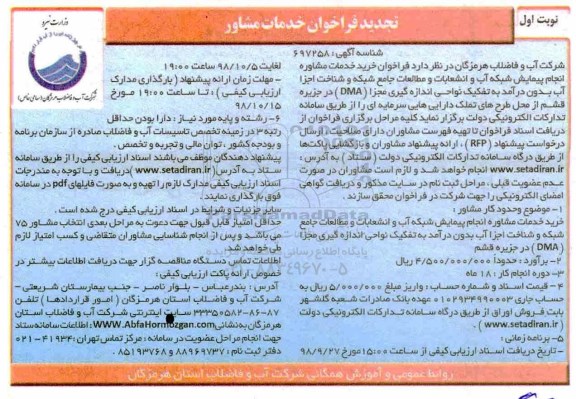 نوبت اول
تجدید فراخوان خدمات مشاور
وزارت نیرو
شرکت آب و فاضلاب هرمزگان (سهامی خاص)
شناسه آگهی: ۶۹۷۲۵۸
شرکت آب و فاضلاب هرمزگان در نظر دارد فراخوان خرید خدمات مشاوره
انجام پیمایش شبکه آب و انشعابات و مطالعات جامع شبکه و شناخت اجزا
آب بدون درآمد به تفکیک نواحی اندازه گیری مجزا (DMA) در جزیره
قشم از محل طرح های تملک دارایی هایی سرمایه ای را از طریق سامانه
تدارکات الکترونیکی دولت برگزار نماید کلیه مراحل برگزاری فراخوان از
دریافت اسناد فراخوان تا تهیه فهرست مشاوران دارای صلاحیت، ارسال
درخواست پیشنهاد (RFP)، ارائه پیشنهاد مشاوران و بازگشایی پاکت‌ها
از طریق درگاه سامانه تدارکات الکترونیکی دولت (ستاد) به آدرس:
www.setadiran.ir انجام خواهد شد و لازم است مشاوران در صورت
عدم عضویت قبلی، مراحل ثبت نام در سایت مذکور و دریافت گواهی
امضای الکترونیکی را جهت شرکت در فراخوان محقق سازند.
۱- موضوع وحدود کار مشاور:
خرید خدمات مشاوره انجام پیمایش شبکه آب و انشعابات و مطالعات جامع
شبکه و شناخت اجزا آب بدون درآمد به تفکیک نواحی اندازه گیری مجزا
(DMA) در جزیره قشم
۲- برآورد: حدودا ۴/۵۰۰/۰۰۰/۰۰۰ ریال
۳- دوره انجام کار: ۱۸ ماه
۴- قیمت اسناد و شماره حساب: واریز مبلغ ۵/۰۰۰/۰۰۰ ریال به
حساب جاری ۰۱۰۲۹۳۴۹۹۰۰۰۳ عهده بانک صادرات شعبه گلشهر
بابت فروش اوراق از طریق درگاه سامانه تدارکات الکترونیکی دولت
(www.setadiran.ir).
۵- برنامه زمانی:
- تاریخ دریافت اسناد ارزیابی کیفی از ساعت ۱۵:۰۰ مورخ ۹۸/۹/۲۷
لغایت ۹۸/۱۰/۵ ساعت ۱۹:۰۰
- مهلت زمان ارائه پیشنهاد (بارگذاری مدارک
ارزیابی کیفی): تا ساعت ۱۹:۰۰ مورخ
۹۸/۱۰/۱۵
۶- رشته و پایه مورد نیاز: دارا بودن حداقل
رتبه ۳ در زمینه تخصص تاسیسات آب و فاضلاب صادره از سازمان برنامه
و بودجه کشور، توان مالی و تجربه و تخصص.
پیشنهاد دهندگان موظف می باشند اسناد ارزیابی کیفی را از طریق سامانه
ستاد به آدرس (www.setadiran.ir) دریافت و با توجه به مندرجات
اسناد ارزیابی کیفی مدارک لازم را تهیه و به صورت فایلهای pdf در سامانه
فوق بارگذاری نمایند.
سایر جزئیات و شرایط در اسناد ارزیابی کیفی درج شده است.
حداقل امتیاز قابل قبول جهت دعوت به مراحل بعدی انتخاب مشاور ۷۵
می باشد و پس از انجام شناسایی مشاوران متقاضی و کسب امتیاز لازم
طی خواهد شد.
اطلاعات تماس دستگاه مناقصه گزار جهت دریافت اطلاعات بیشتر در
خصوص ارائه پاکت ارزیابی کیفی:
آدرس: بندرعباس - بلوار ناصر - جنب بیمارستان شریعتی -
شرکت آب و فاضلاب استان هرمزگان (امور قراردادها) تلفن
۸۷-۳۳۳۵۰۵۸۲-۸۶ سایت اینترنتی شرکت آب و فاضلاب استان
هرمزگان به نشانی WWW.AbfaHormozgan.com اطلاعات سامانه ستاد
جهت انجام مراحل عضویت در سامانه: مرکز تماس تهران: ۴۱۹۳۴-۰۲۱
دفتر ثبت نام: ۸۸۹۶۹۷۳۷ و ۸۵۱۹۳۷۶۸.
روابط عمومی و آموزش همگانی شرکت آب و فاضلاب استان هرمزگان